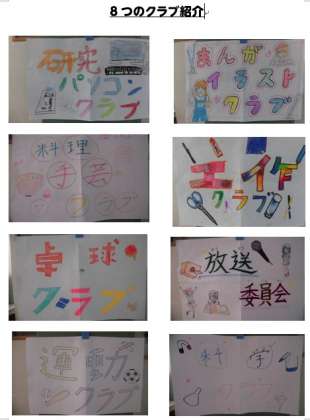 ８つのクラブ紹介
研究
パソコン
クラブ
まんが
イラスト
クラブ
料理
手芸
クラブ
工作
クラブ
卓球
クラブ
放送
委員会
運動
クラブ
科学